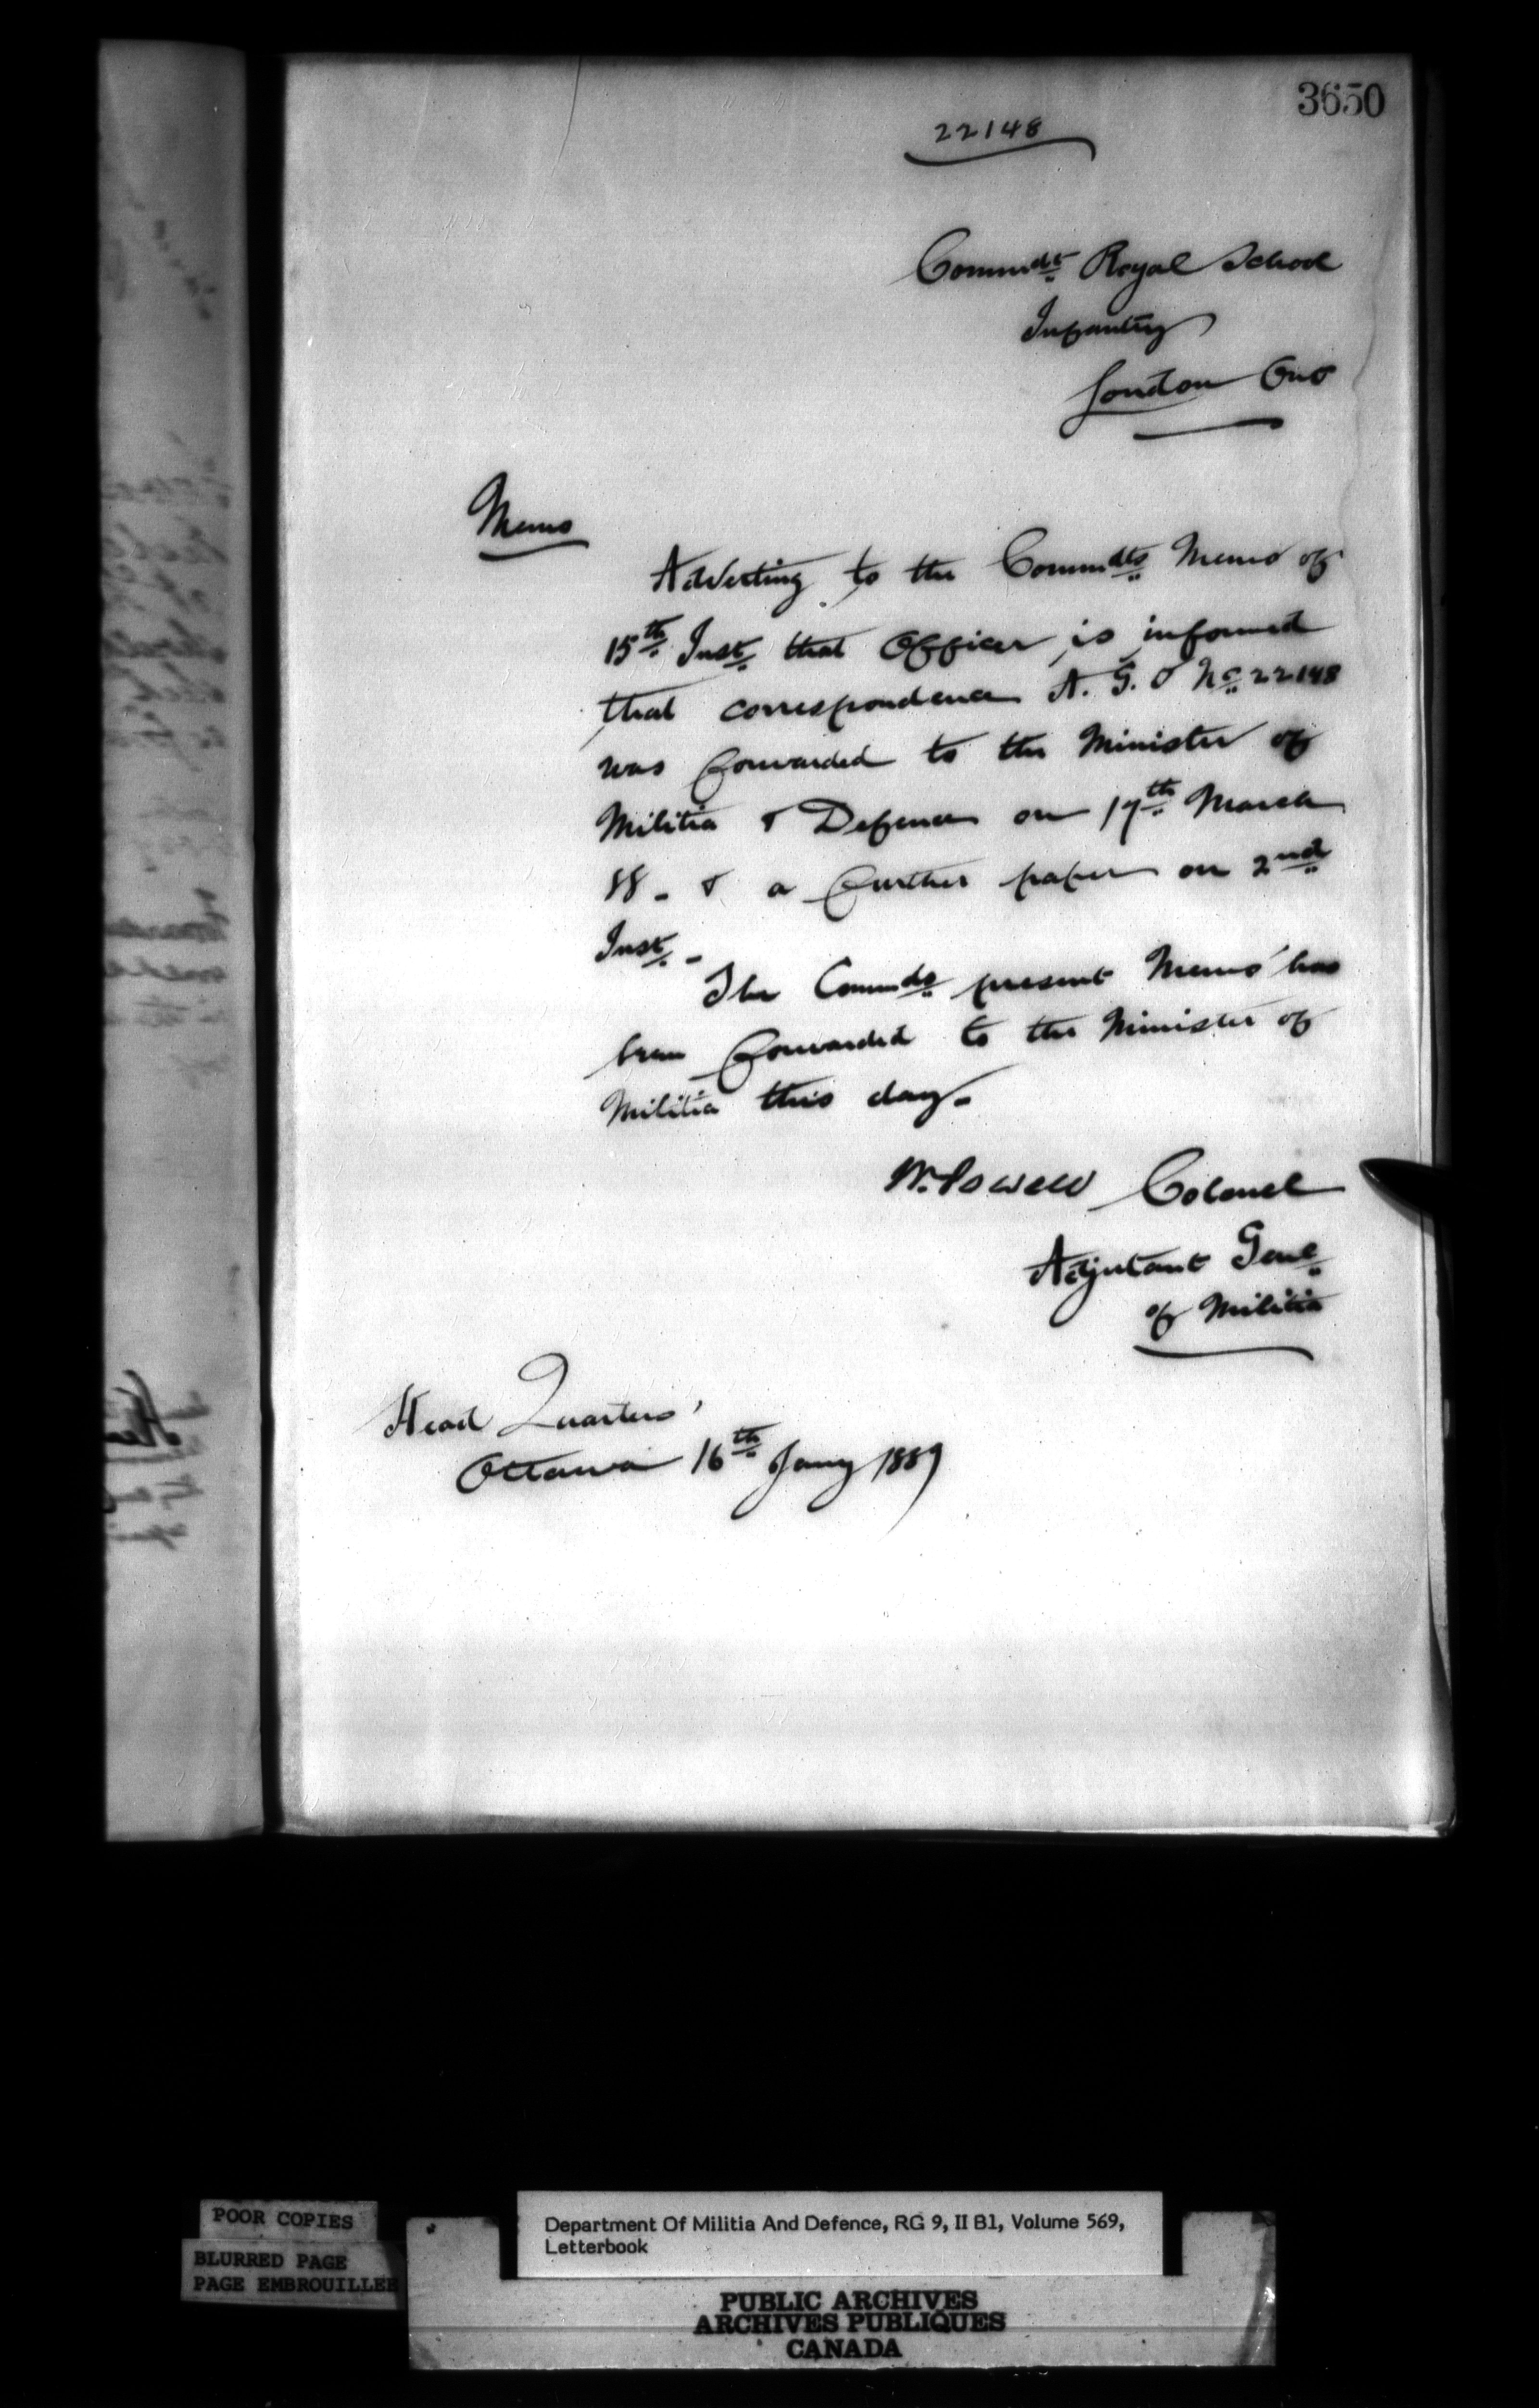 3650
22148
Commdt Royal School
Infantry
London Ont
Memo
Adverting to the Commdts Memo of
15th Inst. that Officer is informed
that correspondence A. G. O No 22148
was forwarded to the Minister of
Militia & Defence on 17th March
88 - & a further paper on 2nd
Inst -
The Commdts present Memo has
been forwarded to the Minister of
Militia this day -
W. Powell Colonel
Adjutant Genl
of Militia
Head Quarters
Ottawa 16th Jany 1889
POOR COPIES
BLURRED PAGE
PAGE EMBROUILLEE
Department Of Militia And Defence, RG 9, II B1, Volume 569,
Letterbook
PUBLIC ARCHIVES
ARCHIVES PUBLIQUES
CANADA